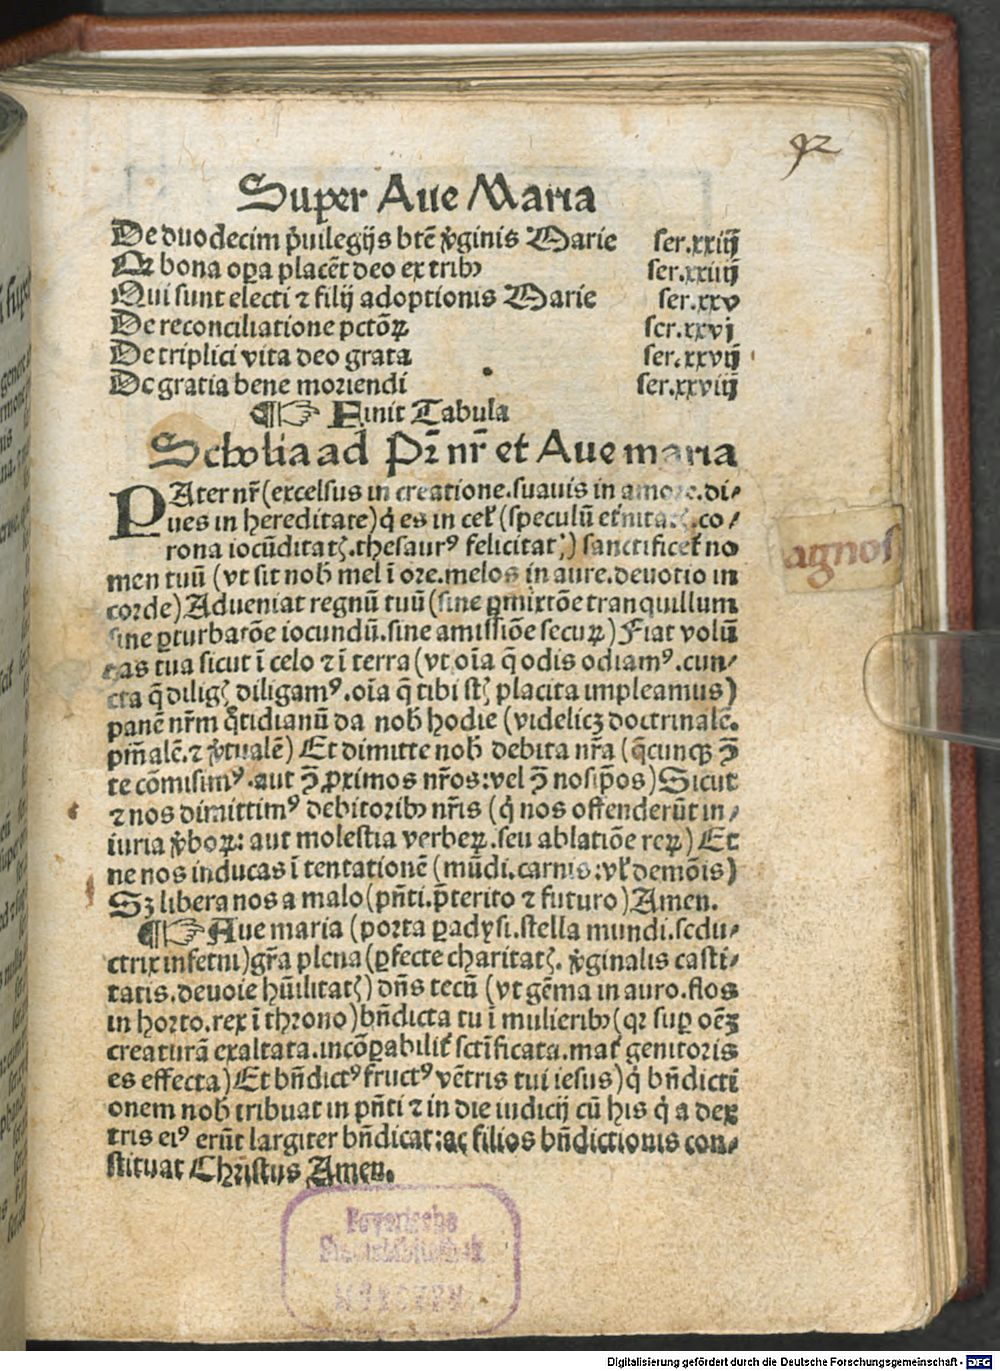 92
Super Aue Maria
De duodecim p̄uilegijs btē v̄ginis Marie ser.xxiij
Qz bona oꝑa placēt deo ex tribꝰ ser.xxiiij
Qui sunt electi ⁊ filij adoptionis Marie ser.xxv
De reconciliatione pctōꝝ ser.xxvj
De triplici vita deo grata ser.xxvij
De gratia bene moriendi ser.xxviij
¶☞ Finit Tabula
Scholia ad Pr̄ nr̄ et Aue maria
PAter nr̄ (excelsus in creatione.suauis in amore.di⸗
ues in hereditate) q̇ es in cel̛ (speculū et̛nitatꝭ.co⸗
rona iocūditatꝭ.thesaurꝰ felicitatꝭ) sanctificet̛ no
men tuū (vt sit nob̄ mel ī ore.melos in aure.deuotio in
corde) Adueniat regnū tuū (sine ꝑmixtōe tranquillum
sine ꝑturbatōe iocundū.sine amissiōe secuꝝ) Fiat volū
tas tua sicut ī celo ⁊ ī terra (vt oīa q̄ odis odiamꝰ.cun⸗
cta q̄ diligꝭ diligamꝰ.oīa q̄ tibi st̄ placita impleamus)
panē nr̄m q̇tidianū da nob̄ hodie (videlicꝫ doctrinalē.
pn̄ialē.⁊ v̇tualē) Et dimitte nob̄ debita nr̄a (q̄cunqꝫ ꝯ̄
te cōmisimꝰ.aut ꝯ̄ ꝓximos nr̄os:vel ꝯ̄ nosip̄os) Sicut
⁊ nos dimittimꝰ debitoribꝰ nr̄is (q̇ nos offenderūt in⸗
iuria v̇boꝝ: aut molestia verbeꝝ.seu ablatiōe reꝝ) Et
ne nos inducas ī tentationē (mūdi.carnis:vl̛ demōis)
Sꝫ libera nos a malo (pn̄ti.p̄terito ⁊ futuro) Amen.
¶☞ Aue maria (porta ꝑadysi.stella mundi.sedu⸗
ctrix inferni) gr̄a plena (ꝑfecte charitatꝭ. v̇ginalis casti⸗
tatis.deuote hūilitatꝭ) dn̄s tecū (vt gēma in auro.flos
in horto.rex ī throno) bn̄dicta tu ī mulieribꝰ (qr̄ suꝑ oēꝫ
creaturā exaltata.incōꝑabilit̛ sctīficata.mat̛ genitoris
es effecta) Et bn̄dictꝰ fructꝰ vētris tui iesus) q̇ bn̄dicti
onem nob̄ tribuat in pn̄ti ⁊ in die iudicij cū his q̇ a dex
tris eiꝰ erūt largiter bn̄dicat:ac filios bn̄dictionis con⸗
stituat Christus Amen.
Bayerische
Staatsbibliothek
MÜNCHEN
Digitalisierung gefördert durch die Deutsche Forschungsgemeinschaft - DFG